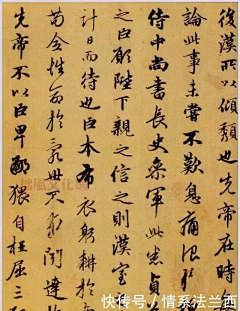 後漢所以傾頹也先帝在時
論此事未嘗不歎息痛恨於
侍中尚書長史參軍此悉貞
之臣願陛下親之信之則漢室
計日而待也臣本布衣躬耕於
苟全性命於亂世不求聞達
先帝不以臣卑鄙猥自枉屈三
快传号/情系法兰西